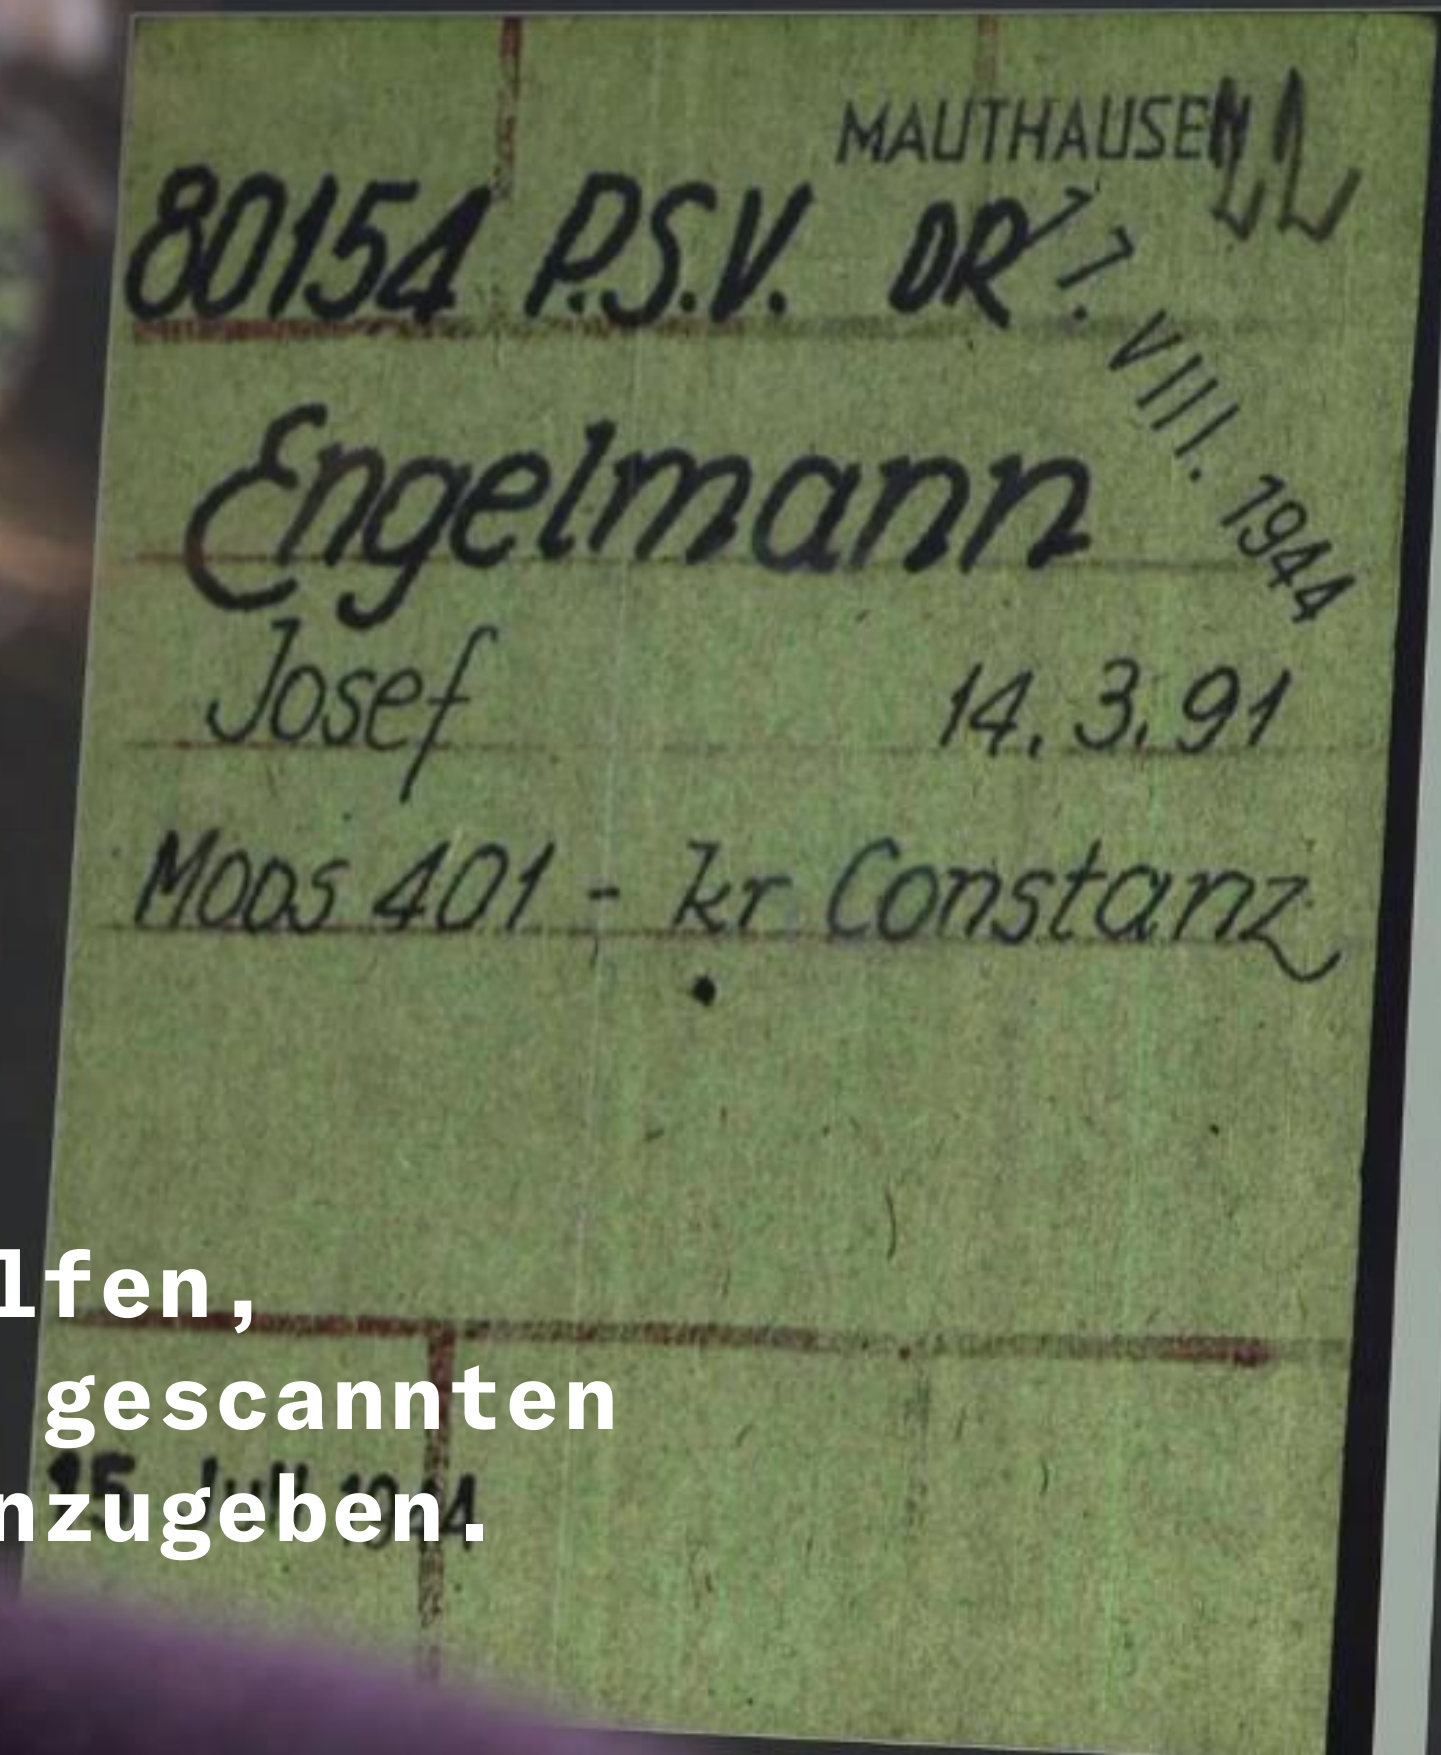 MAUTHAUSEN
80154 P.S.V. DR
VIII. 1944
Engelmann
Josef 14.3.91
Moos 401 - kr Constanz
lfen,
gescannten
nzugeben.